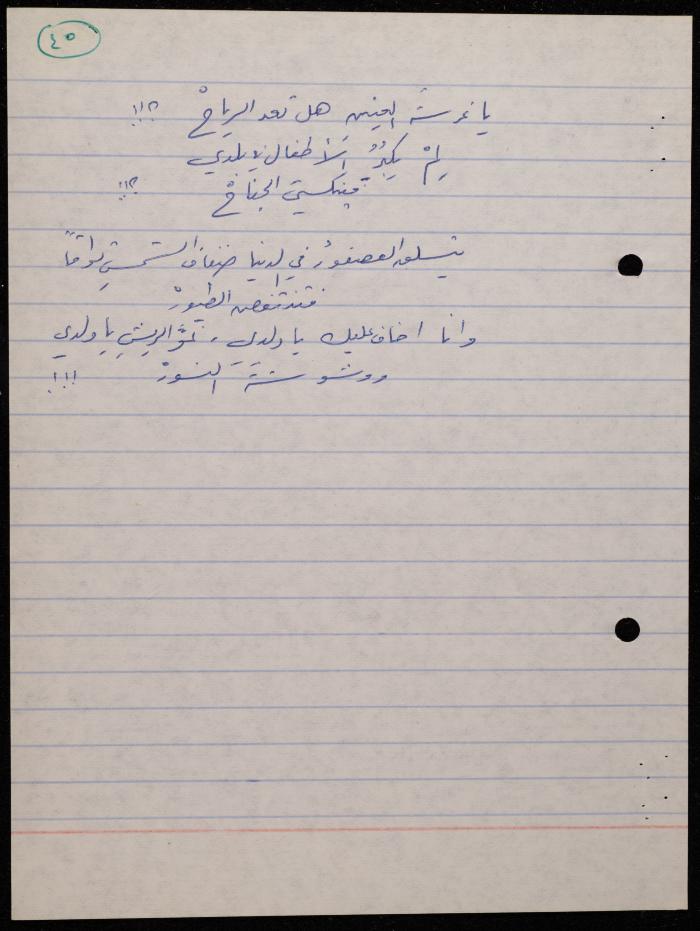 ٤٥
يا غرسة العينين هل تعد الرياحْ ؟!!
لِمْ يكبُرُ الأطفال يا بلدي
فينكسيَ الجناحْ ؟!!
يتسلق العصفورُ في الدنيا ضفاف الشمسِ تواقاً
فتنتفض الطيورْ
وانا اخاف عليك يا ولدي ، نموَّ الريشِ يا ولدي
ووشوشةَ النسورْ !!!